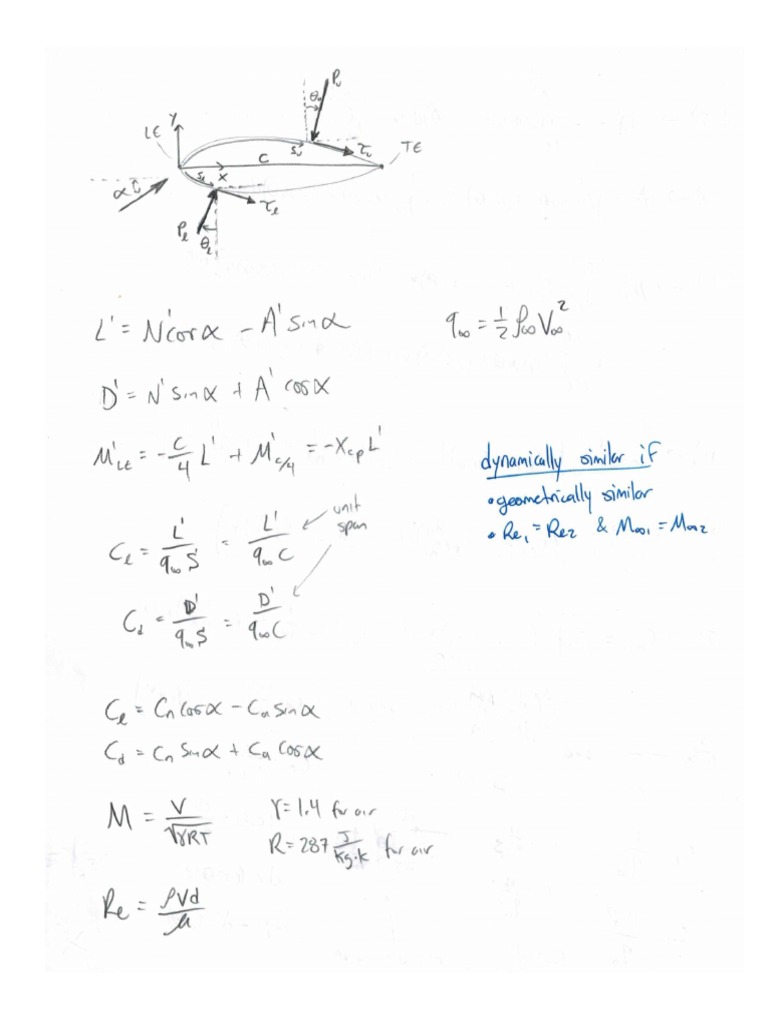 Pᵤ
θᵤ
LE Y
Sᵤ τᵤ TE
C
Sₗ X
α
τₗ
Pₗ
θₗ
L' = N'cosα - A'sinα
q∞ = 1/2 ρ∞V∞²
D' = N'sinα + A'cosα
M'LE = -c/4 L' + M'c/4 = -Xcp L'
dynamically similar if
• geometrically similar
• Re₁ = Re₂ & M∞₁ = M∞₂
unit
span
Cₗ = L'/(q∞S) = L'/(q∞C)
C_d = D'/(q∞S) = D'/(q∞C)
Cₗ = Cₙcosα - Cₐsinα
C_d = Cₙsinα + Cₐcosα
M = V/√(γRT)
γ = 1.4 for air
R = 287 J/(kg·k) for air
Re = ρVd/μ